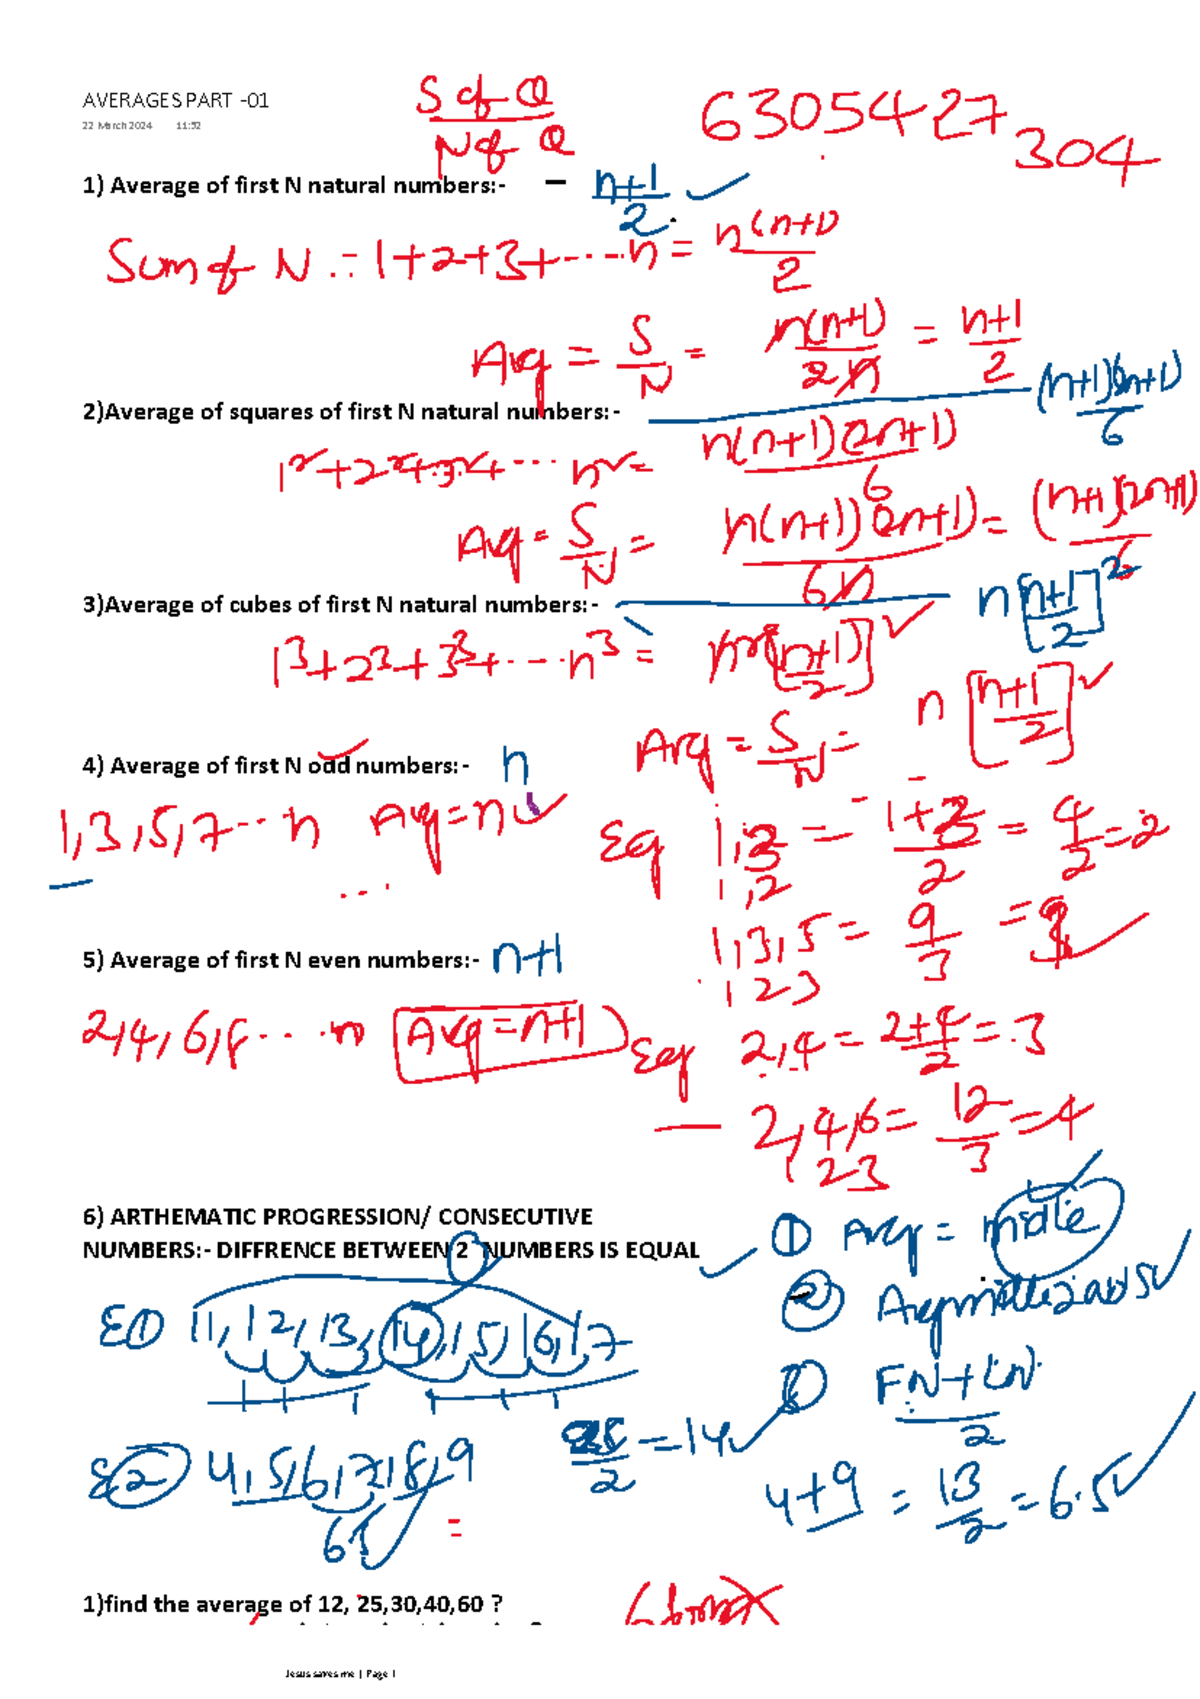 AVERAGES PART -01
22 March 2024 11:52
S of Q / N of Q
6305427304
1) Average of first N natural numbers:- – n+1/2 ✓
Sum of N = 1+2+3+----n = n(n+1)/2
Avg = S/N = n(n+1)/2n = n+1/2
2)Average of squares of first N natural numbers:- (n+1)(2n+1)/6
1²+2²+3²+ ... n² = n(n+1)(2n+1)/6
Avg = S/N = n(n+1)(2n+1)/6n = (n+1)(2n+1)/6
3)Average of cubes of first N natural numbers:- n[n+1/2]²
1³+2³+3³+----n³ =
Avg = S/N = n[n+1/2]² ✓
4) Average of first N odd numbers:- n
1,3,5,7---n Avg=n ✓
Eg 1,3 = 1+3/2 = 4/2 = 2
1,2
1,3,5 = 9/3 = 3
1 2 3
5) Average of first N even numbers:- n+1
2,4,6,8----n Avg=n+1
Eg 2,4 = 2+4/2 = 3
2,4,6 = 12/3 = 4
1 2 3
6) ARTHEMATIC PROGRESSION/ CONSECUTIVE
NUMBERS:- DIFFRENCE BETWEEN 2 NUMBERS IS EQUAL ✓
① Avg = midle
②
E① 11,12,13,14,15,16,17
FN+LN/2
28/2 = 14 ✓
E② 4,5,6,7,8,9
6.5
4+9/2 = 13/2 = 6.5 ✓
1)find the average of 12, 25,30,40,60 ?
Jesus saves me | Page 1